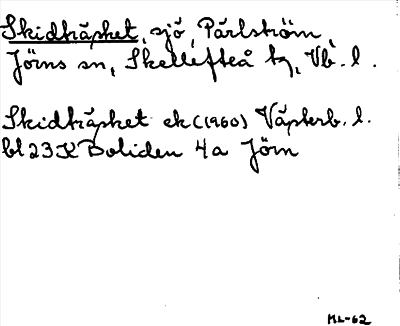 Skidträsket, sjö, Pärlström,
Jörns sn, Skellefteå tg, Vb. l.
Skidträsket ek (1960) Västerb. l.
bl 23K Boliden 4a Jörn
ML-62